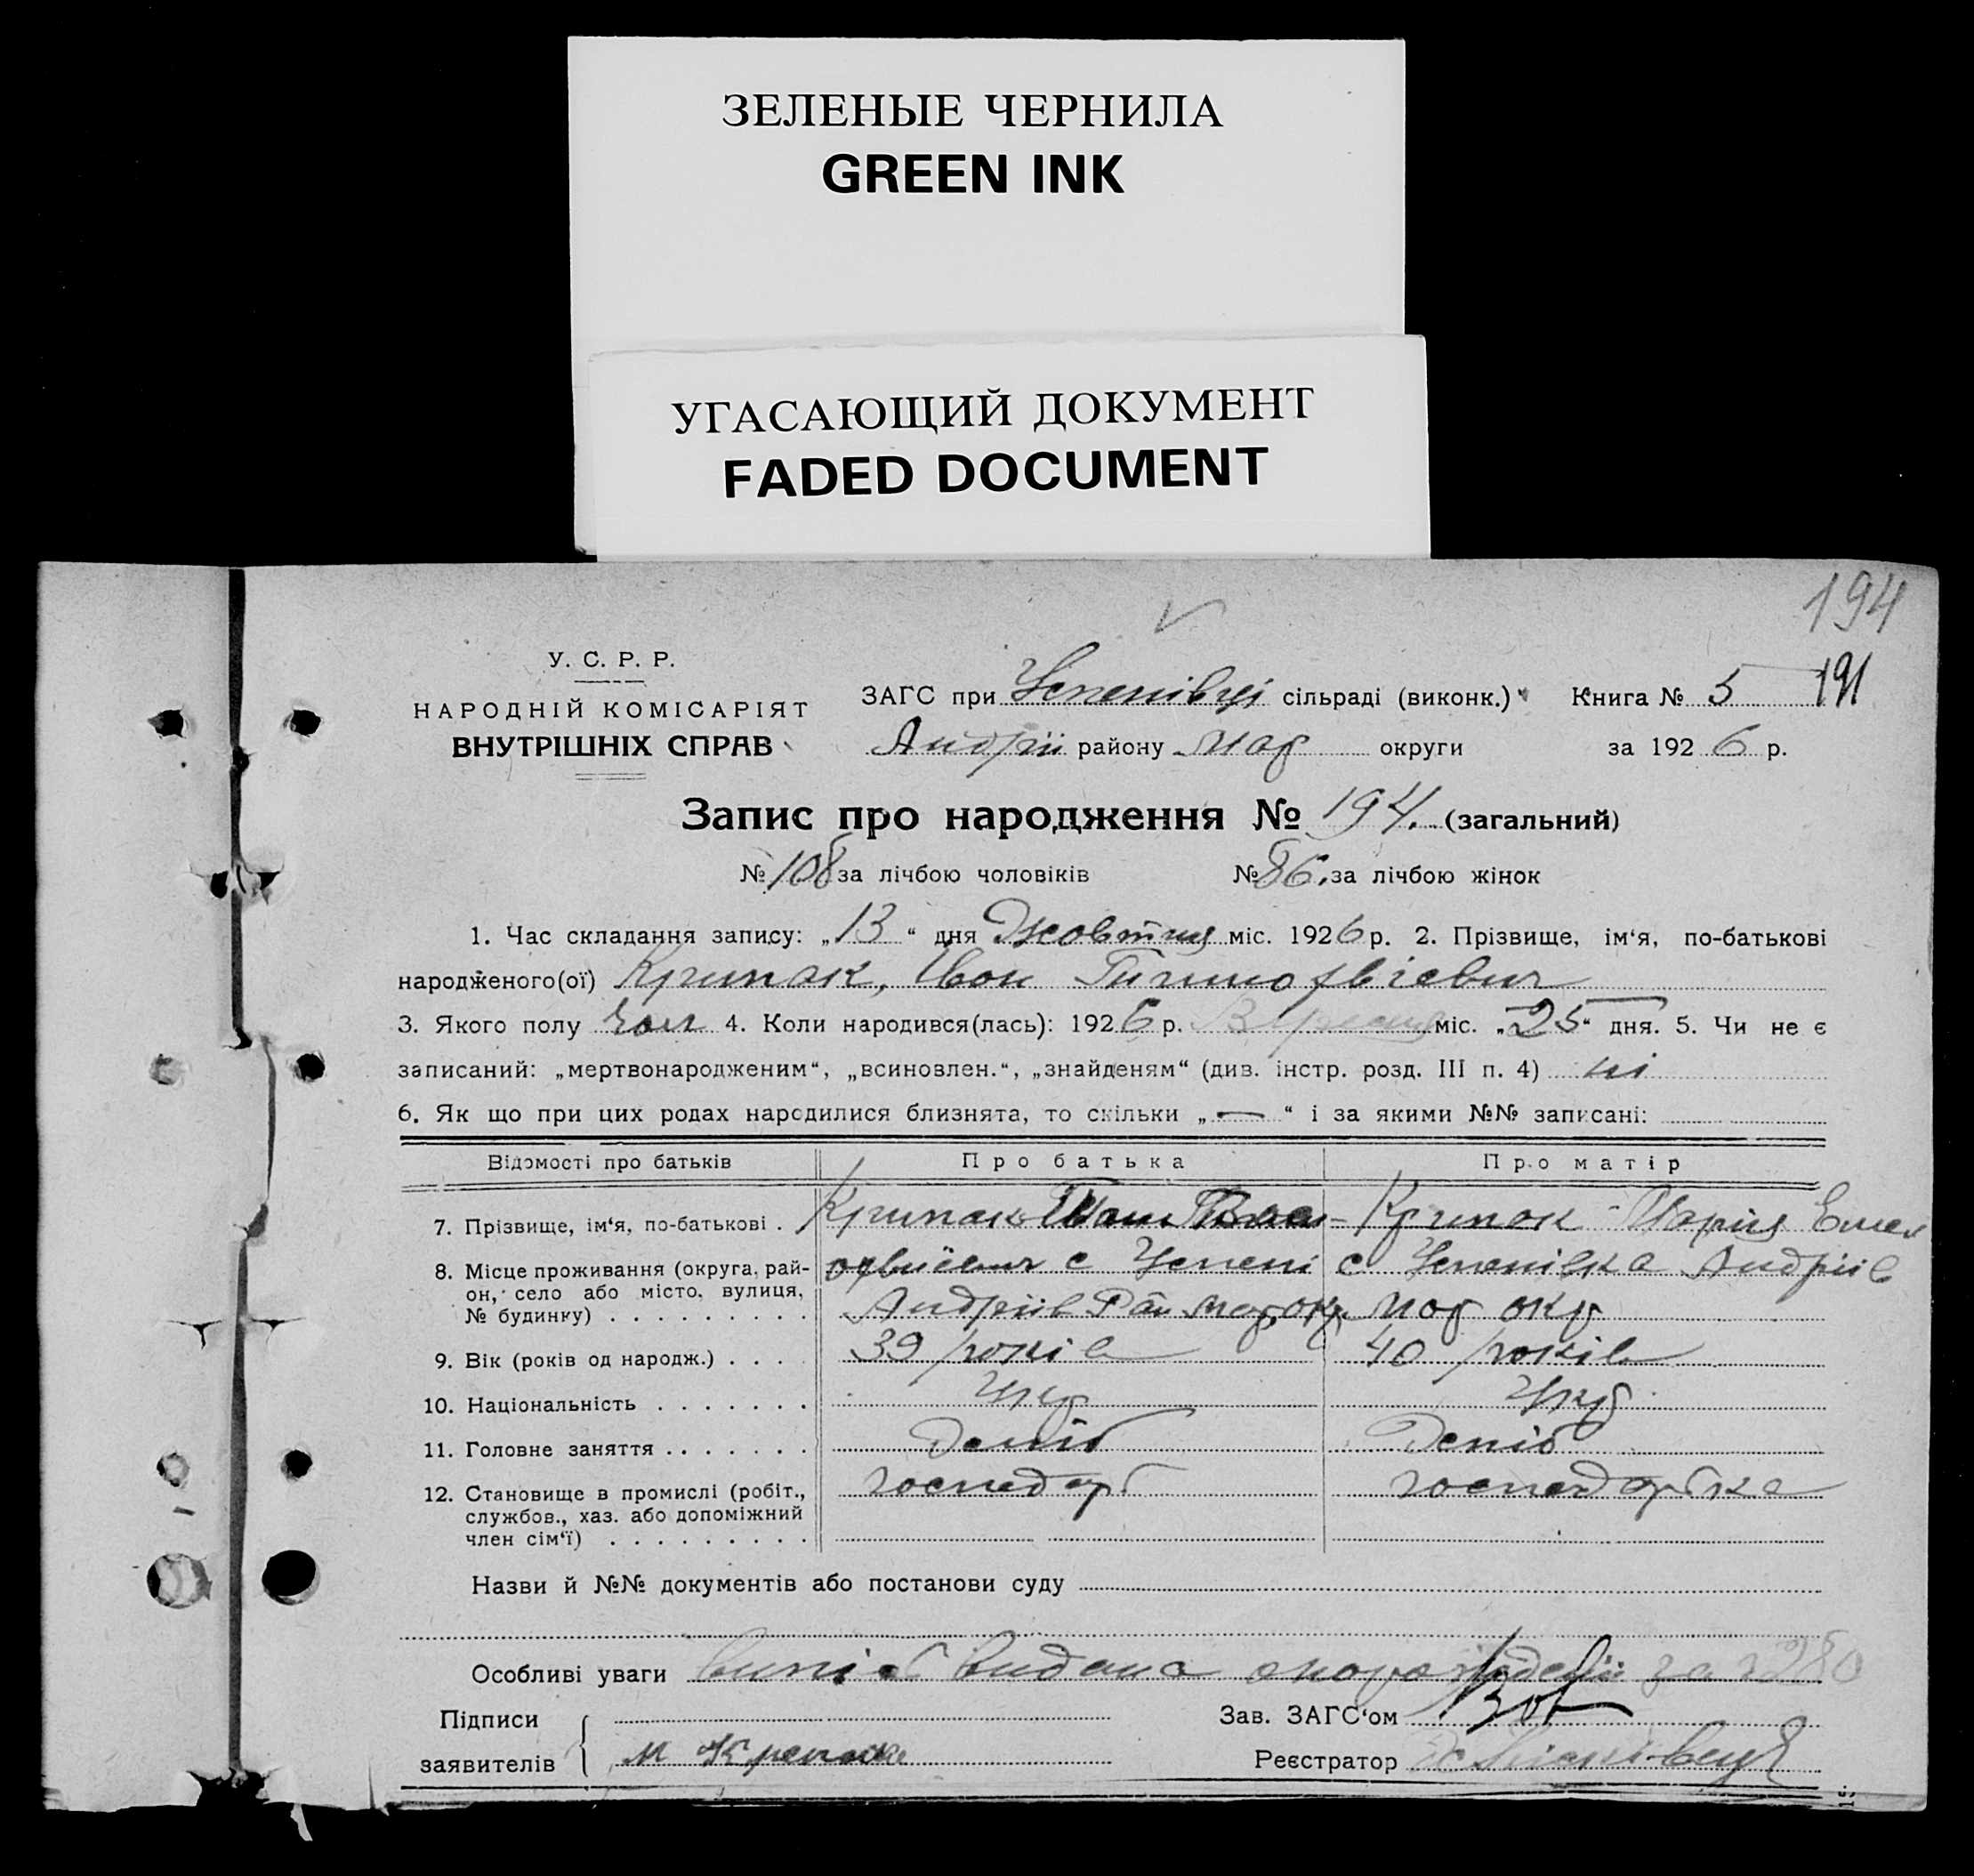 ЗЕЛЕНЫЕ ЧЕРНИЛА
GREEN INK
УГАСАЮЩИЙ ДОКУМЕНТ
FADED DOCUMENT
194
У. С. Р. Р.
НАРОДНІЙ КОМІСАРІЯТ
ВНУТРІШНІХ СПРАВ
ЗАГС при Успенівці сільраді (виконк.) Книга № 5 191
Андрії району округи за 1926 р.
Запис про народження № 194. (загальний)
№ 108 за лічбою чоловіків № 86. за лічбою жінок
1. Час складання запису: „13“ дня Жовтня міс. 1926 р. 2. Прізвище, ім‘я, по-батькові
народженого(ої) Крипак, Іван Тимофѣевич
3. Якого полу чол 4. Коли народився(лась): 1926 р. Вересня міс. „25“ дня. 5. Чи не є
записаний: „мертвонародженим“, „всиновлен.“, „знайденям“ (див. інстр. розд. III п. 4) ні
6. Як що при цих родах народилися близнята, то скільки „—“ і за якими №№ записані:
Відомості про батьків Про батька Про матір
7. Прізвище, ім‘я, по-батькові . Крипак Крипак Марія Емел
8. Місце проживання (округа, рай- с Успені с Успенівка Андріів
он, село або місто, вулиця, Андріів Рай Мар окр Мар окр
№ будинку)
9. Вік (років од народж.) . . . 39 років 40 років
10. Національність . . . . . . . Укр Укр
11. Головне заняття . . . . . . .
12. Становище в промислі (робіт., господар господарка
службов., хаз. або допоміжний
член сім‘ї) . . . . . . . . .
Назви й №№ документів або постанови суду
Особливі уваги видана за
Підписи Зав. ЗАГС‘ом
заявителів М Реєстратор
15.